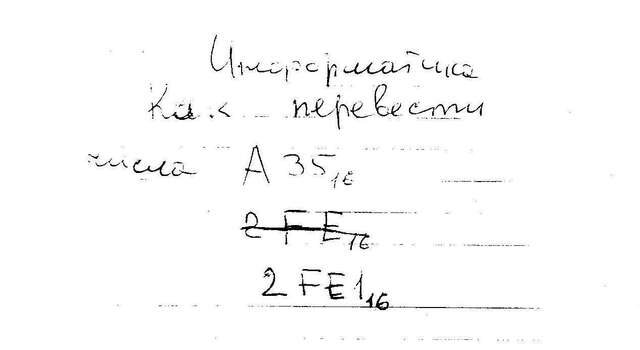 Информатика
Как перевести
числа A 35₁₆
2 FE₁₆
2 FE1₁₆